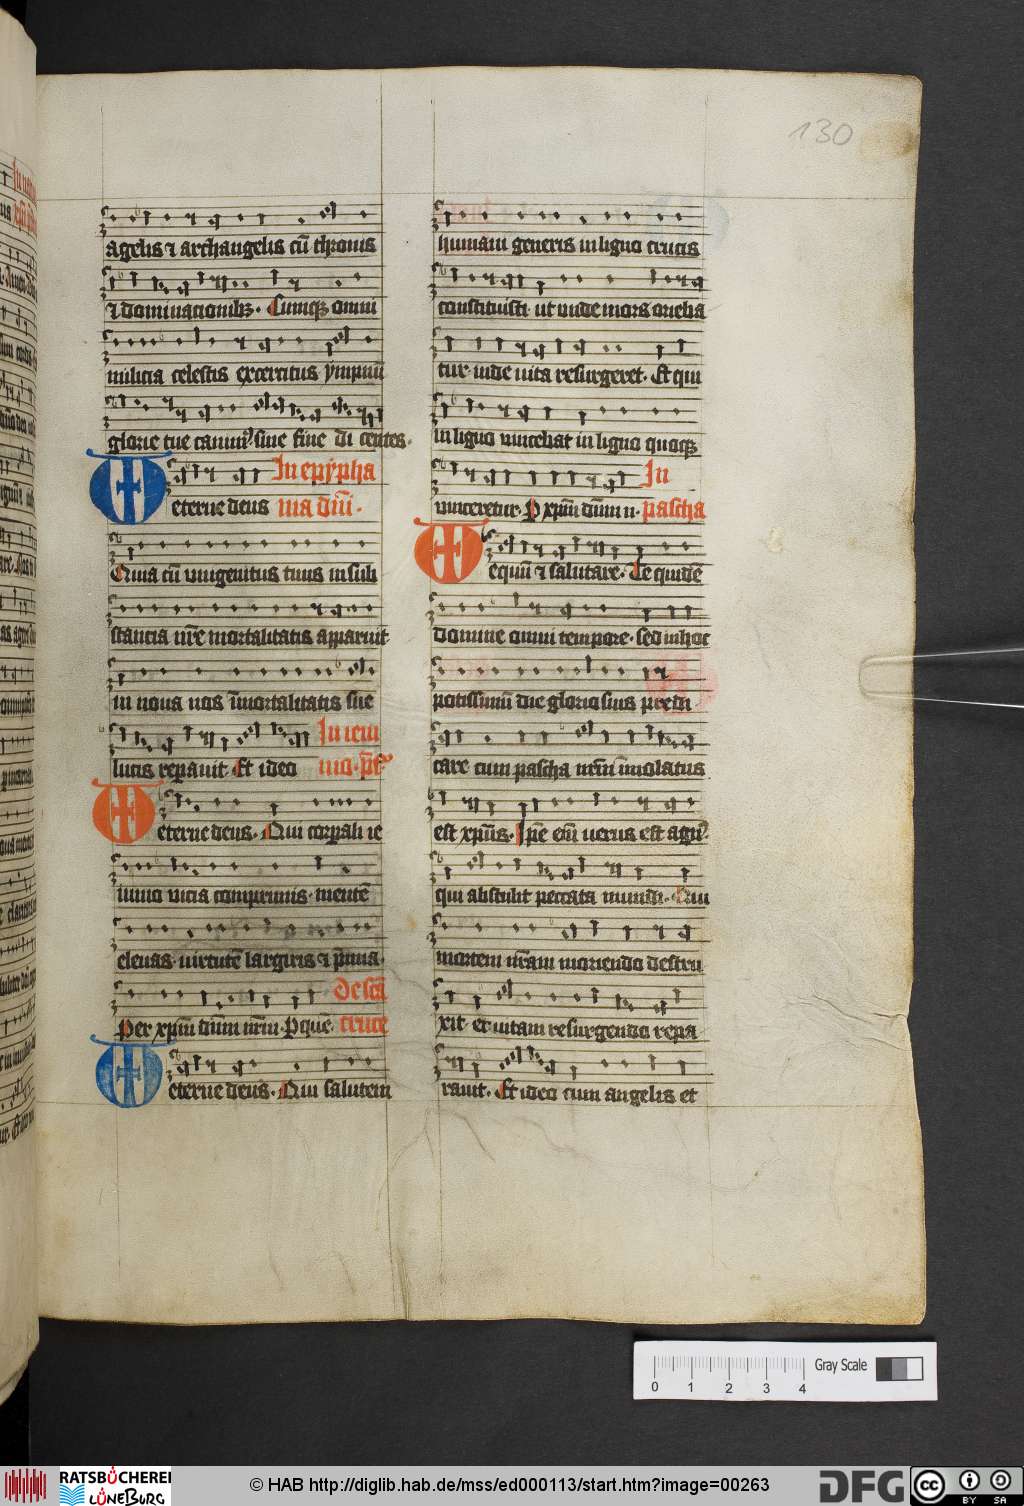 130
agelis ⁊ archangelis cū thronis
⁊ dominacionibꝫ. Cumqꝫ omni
milicia celestis exercitus ympnū
glorie tue canimꝰ sine fine dicentes.
In epypha
eterne deus nia dn̄i.
Quia cū unigenitus tuus in sub
stancia nr̄e mortalitatis apparuit
in noua nos īmortalitatis sue
lucis reparauit. Et ideo
In ieiu
nio.
eterne deus. Qui corporali ie
iunio uicia comprimis. mentē
eleuas. uirtutē largiris ⁊ p̄mia.
De scā
Per xp̄m dn̄m nr̄m. Per quē. cruce
eterne deus. Qui salutem
humani generis in ligno crucis
constituisti. ut unde mors orieba
tur. inde uita resurgeret. Et qui
in ligno uincebat in ligno quoqꝫ
In
uinceretur. P xp̄m dn̄m n. pascha
equū ⁊ salutare. Te quidē
domine omni tempore. sed in hoc
potissimū die gloriosius predi
care cum pascha nr̄m īmolatus
est xp̄us. Ip̄e em̄ uerus est agnꝰ
qui abstulit peccata mundi. Qui
mortem nr̄am moriendo destru
xit. et uitam resurgendo repa
rauit. Et ideo cum angelis et
Gray Scale
0 1 2 3 4
RATSBÜCHEREI
LÜNEBURG
© HAB http://diglib.hab.de/mss/ed000113/start.htm?image=00263
DFG
cc BY SA